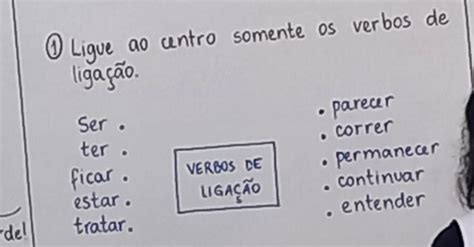 ① Ligue ao centro somente os verbos de
ligação.
Ser .
ter .
ficar .
estar .
tratar .
VERBOS DE
LIGAÇÃO
. parecer
. correr
. permanecer
. continuar
. entender
de!